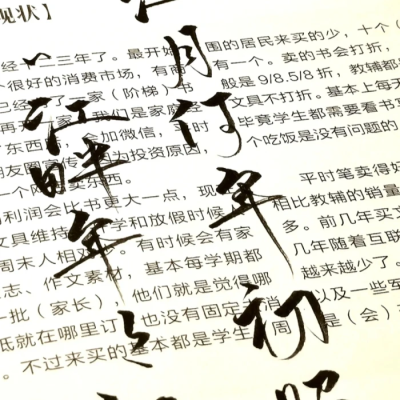 现状】
经 二三年了。最开始 围的居民来买的少，十个（
个很好的消费市场，有商 有一个。卖的书会打折，
已经 了一家（阶梯）书 般是 9/8.5/8 折，教辅都
再 家。我们是家庭 文具不打折。基本上每天
东西 会加微信，平时 毕竟学生都需要看书
朋友圈宣传 为投资原因， 个吃饭是没有问题的
一个网 卖东西。
利润会比书更大一点，现 平时笔卖得好
文具维持 学和放假时候 相比教辅的销量
周末人相对 。有时候会有家 多。前几年买文
志、作文素材，基本每学期都 几年随着互联
一批（家长），他们就是觉得哪 越来越少了。
低就在哪里订 也没有固定 消 以及一些
。不过来买的基本都是学生 周 是（会）
江月何年初照
江畔年